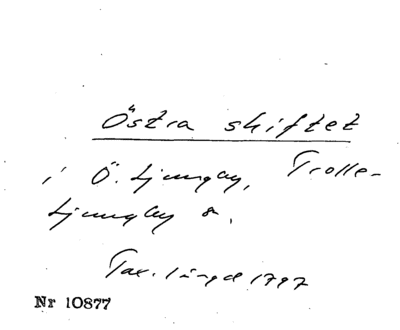 Östra skiftet
i Ö. Ljungby, Trolle-
Ljungby s.
Tax. längd 1797
Nr 10877